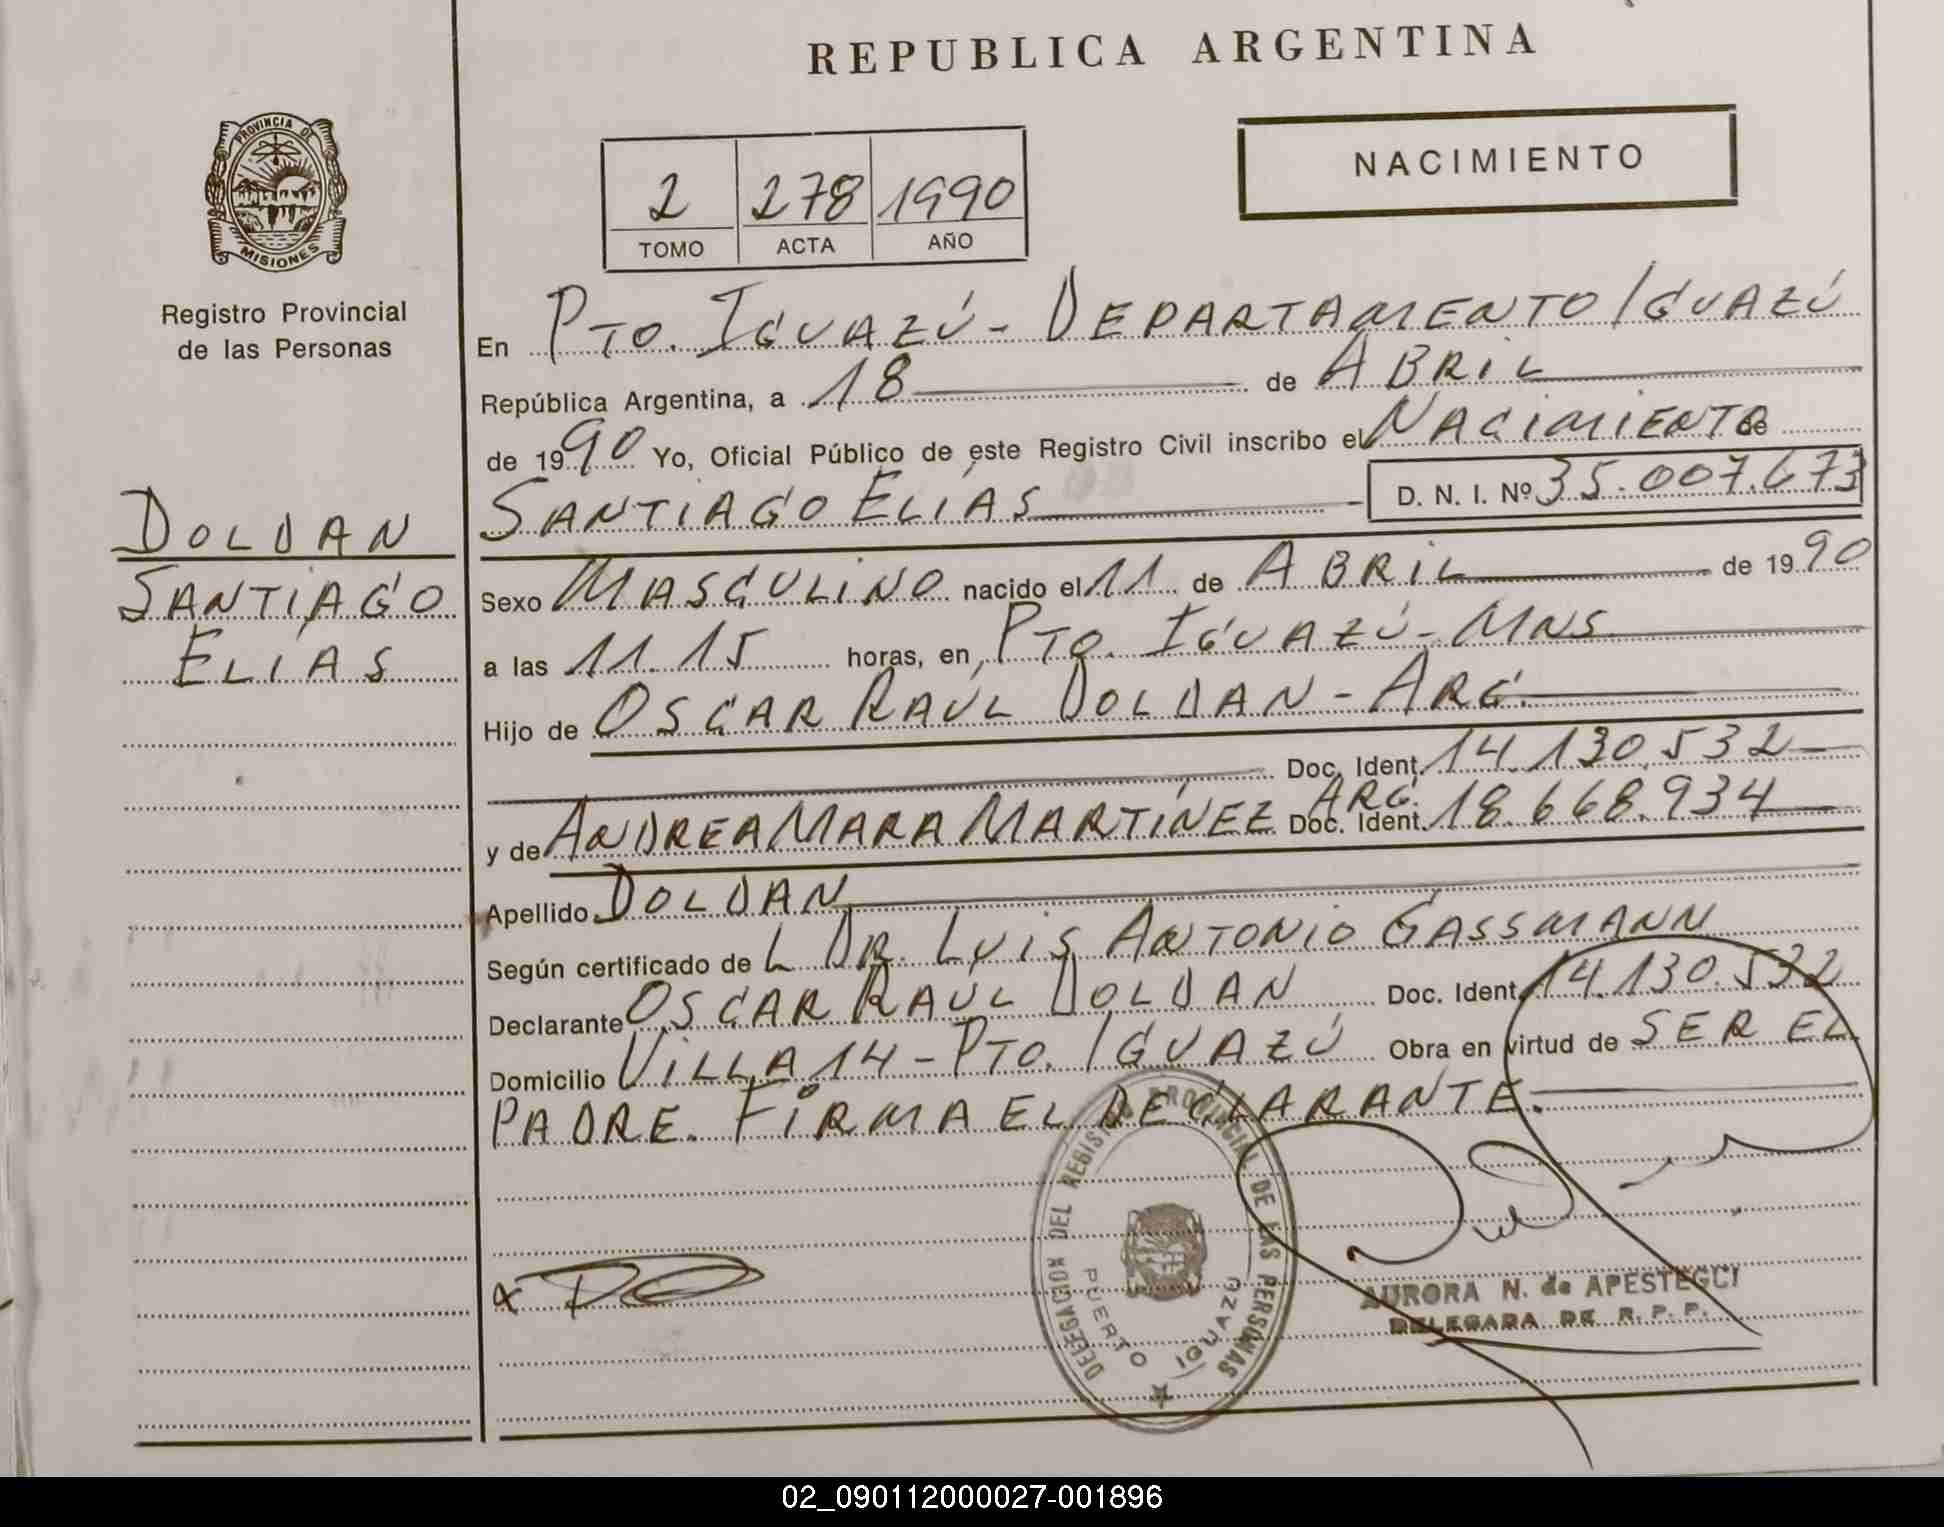 REPUBLICA ARGENTINA
PROVINCIA DE
MISIONES
Registro Provincial
de las Personas
2 278 1990
TOMO ACTA AÑO
NACIMIENTO
En PTO. IGUAZÚ - DEPARTAMENTO IGUAZÚ
República Argentina, a 18 de ABRIL
de 1990 Yo, Oficial Público de este Registro Civil inscribo el NACIMIENTO de
SANTIAGO ELÍAS D. N. I. Nº 35.007.673
DOLDAN
SANTIAGO
ELIAS
Sexo MASCULINO nacido el 11 de ABRIL de 1990
a las 11.15 horas, en PTO. IGUAZÚ - MNS
Hijo de OSCAR RAÚL DOLDAN - ARG.
Doc. Ident. 14.130.532
y de ANDREA MARA MARTÍNEZ ARG. Doc. Ident. 18.668.934
Apellido DOLDAN
Según certificado de L DR. LUIS ANTONIO GASSMANN
Declarante OSCAR RAÚL DOLDAN Doc. Ident. 14.130.532
Domicilio VILLA 14 - PTO. IGUAZÚ Obra en virtud de SER EL
PADRE. FIRMA EL DECLARANTE.
DELEGACION DEL REGISTRO PROVINCIAL DE LAS PERSONAS
PUERTO IGUAZU
AURORA N. de APESTEGUI
DELEGADA DE R. P. P.
02_090112000027-001896